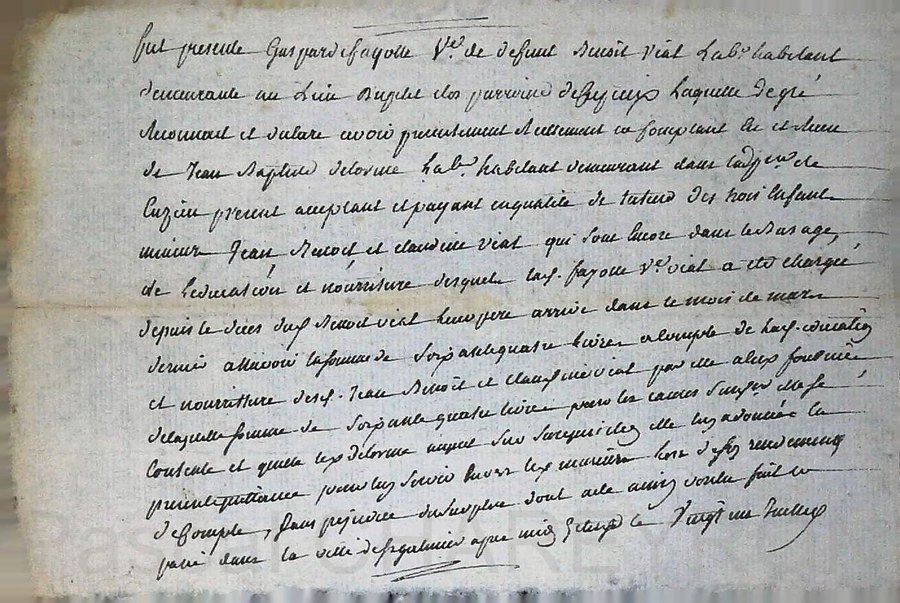 fut presente Gasparde fayolle Ve. de defunt Benoit Viat Labr. habitant
demeurante au Lieu
Reconnoit et declare avoir presentement Reellement en Comptant Eu et Receu
de Jean Baptiste delorme Labr. habitant demeurant dans lad. de
Cuzieu present acceptant et payant en qualité de tuteur des trois Enfants
mineurs Jean Benoit et Claudine Viat qui sont Encore dans le Bas age,
de Leducation et nourriture desquels lad. fayolle Ve. viat a été chargée
depuis le deces dud. Benoit viat leur pere arrivé dans le mois de mars
dernier a Scavoir la somme de Soixante quatre livres a Compte de lad. education
et nourriture desd. Jean Benoit et Claudine viat par elle a Eux fournie
de laquelle somme de Soixante quatre livres pour les causes susd. elle se
Contente et quitte led. delorme auquel elle en a donnée la
presente quittance pour luy Servir Envers led. mineurs lors de Son rendement
de Compte, Sans prejudice du Surplus dont acte ainsi voulu fait et
passé dans la ville de St galmier apres midy le Vingt un Juillet